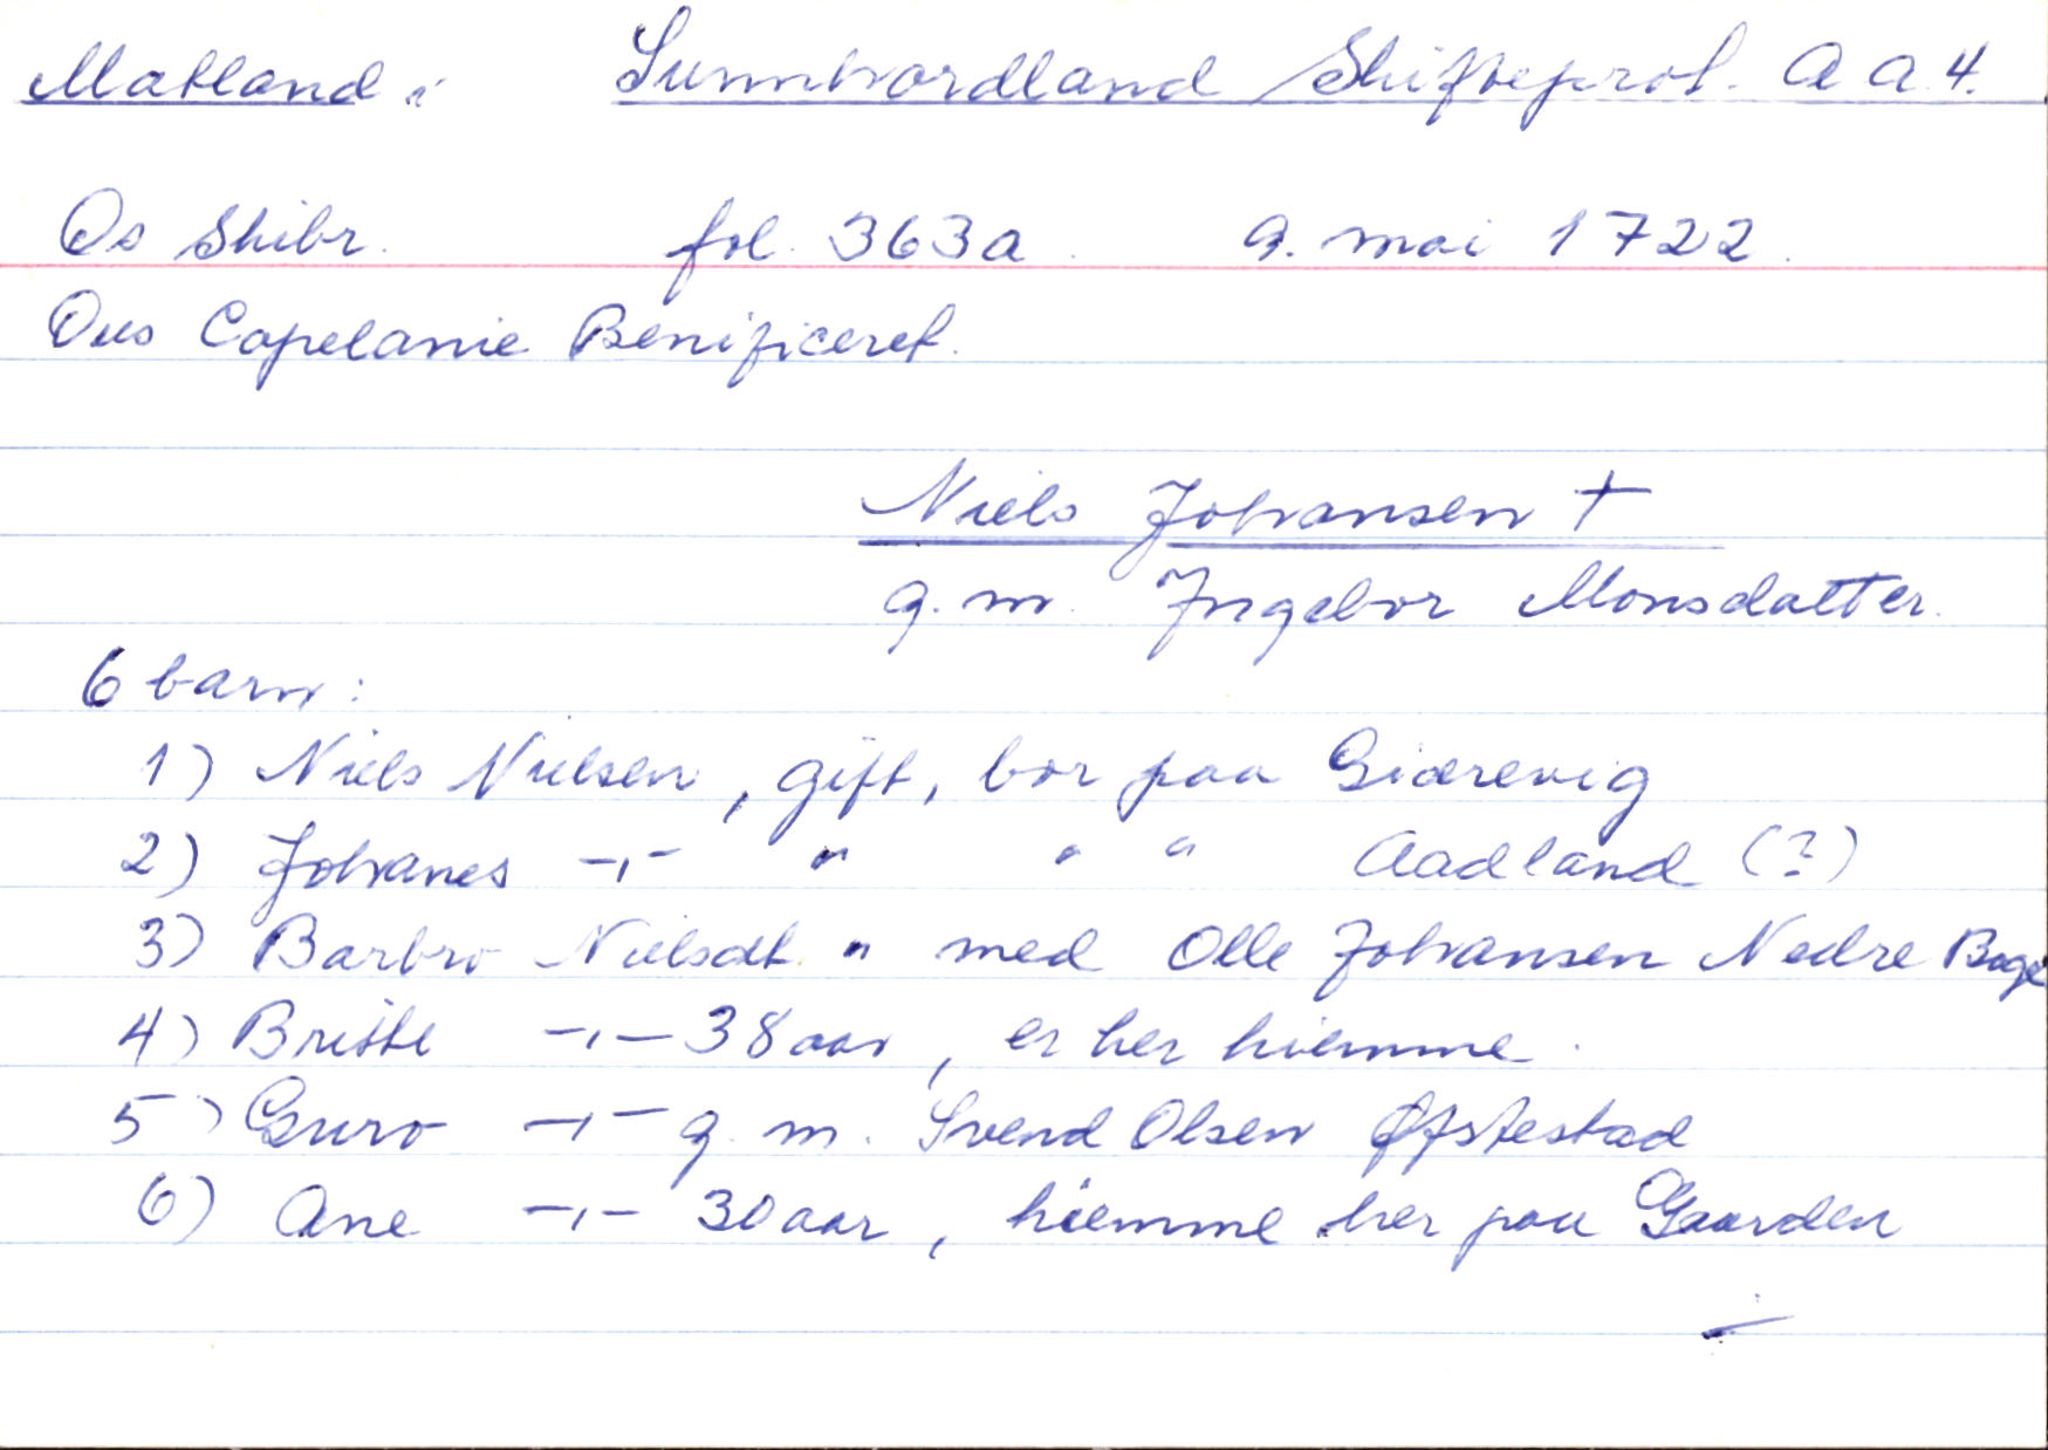 Matland. Sunnhordland Skifteprot. A a 4.
Os Skibr. fol. 363a. 9. mai 1722.
Ous Capelanie Benificeret.
Niels Johansen †
g. m. Ingebor Monsdatter.
6 barn:
1) Niels Nielsen, gift, bor paa Giærevig
2) Johanes -,- " " " Aadland (?)
3) Barbro Nielsdt. " med Olle Johansen Nedre Bage
4) Britte -,- 38 aar, er her hiemme.
5) Guro -,- g. m. Svend Olsen Øfstestad
6) Ane -,- 30 aar, hiemme her paa Gaarden